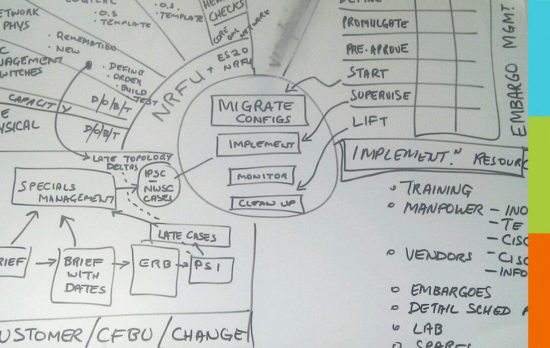 NETWORK
PHYS
O.S
TEMPLATE
O.S.
TEMPLATE
CHECKS
CORE
NETWORK
REMEDIATION
NEW
DEFINE
ORDER
BUILD
TEST
CAPACITY
D/O/B/T
D/O/B/T
NRFU + ES20
NRFU
MIGRATE
CONFIGS
IMPLEMENT
MONITOR
CLEAN UP
PROMULGATE
PRE-APPROVE
START
SUPERVISE
LIFT
EMBARGO MGMT
LATE TOPOLOGY
DELTAS
IPSC
NWSC
CASES
SPECIALS
MANAGEMENT
LATE CASES
BRIEF
WITH
DATES
ERB
PSI
CUSTOMER/CFBU/CHANGE
IMPLEMENT.N RESOURC
TRAINING
MANPOWER - INO
- TE
- CISC
VENDORS - CISC
- INFO
EMBARGOES
DETAIL SCHED
LAB
SPARES